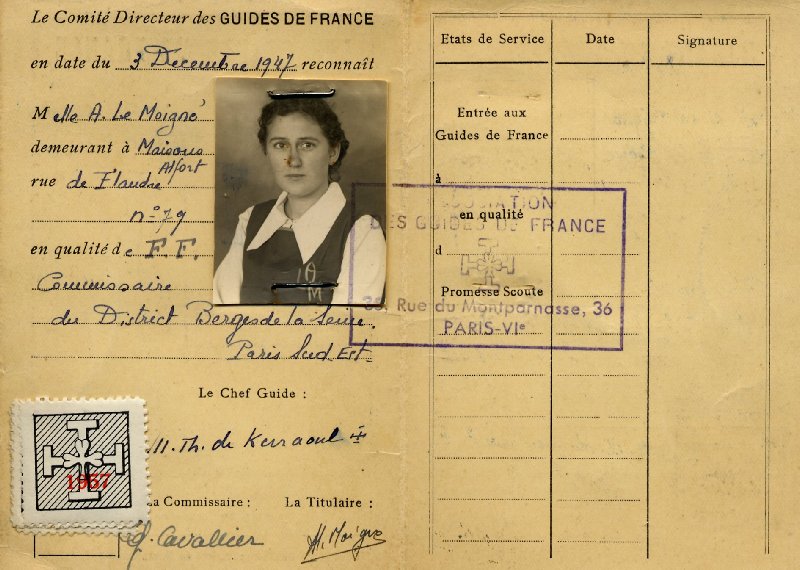 Le Comité Directeur des GUIDES DE FRANCE
en date du 3 Decembre 1947 reconnaît
Melle A. Le Moigné
demeurant à Maisons
Alfort
rue de Flandre
n° 79
en qualité de F. F.
Commissaire
du District Berges de la Seine.
Paris Sud Est
Le Chef Guide :
M. Th. de Kerraoul
1957
La Commissaire : La Titulaire :
Cavallier
Moigne
M
Etats de Service Date Signature
Entrée aux
Guides de France
à
en qualité
d
Promesse Scoute
ASSOCIATION
DES GUIDES DE FRANCE
36 Rue du Montparnasse, 36
PARIS-VIe